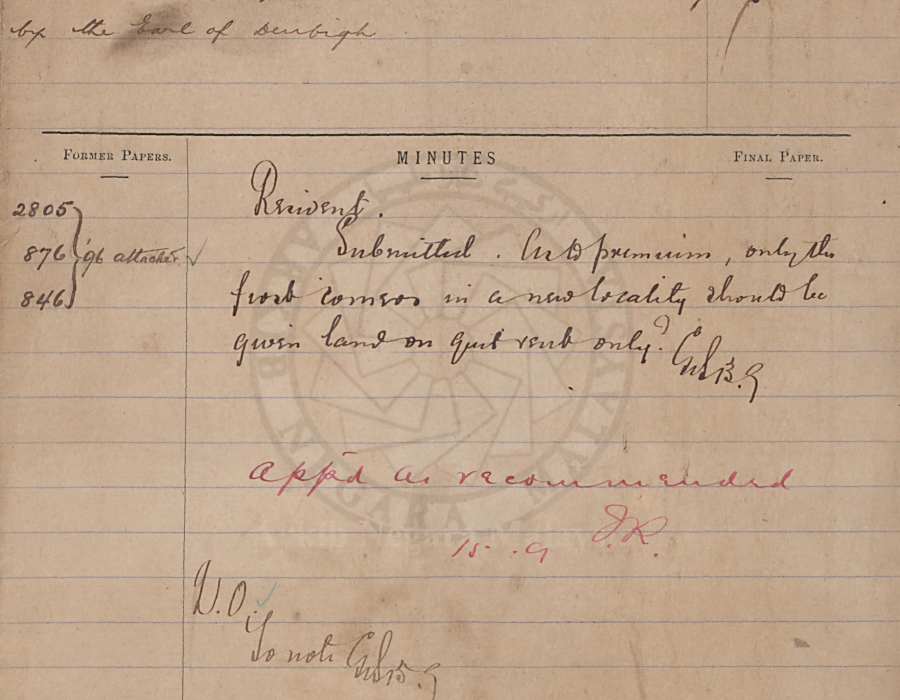 by the Earl of Denbigh
FORMER PAPERS.
MINUTES
FINAL PAPER.
2805
876 '96 attached
846
Resident.
Submitted. As to premium, only the
first comers in a new locality should be
given land on quit rent only?
appd as recommended
15.9 J.R.
D.O.
To note
ARKIB NEGARA MALAYSIA